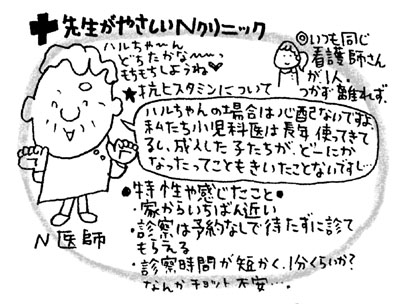 先生がやさしいNクリニック
ハルちゃ〜ん、
どぅちたかな〜〜っ
もちもちしようね♡
◎いつも同じ
看護師さん
が1人。
つかず離れず。
★抗ヒスタミンについて
ハルちゃんの場合は心配ないですよ。
私たち小児科医は長年使ってきて
るし、成人した子たちが、どーにか
なったってこともきいたことないですし…
N医師
●特性や感じたこと●
・家からいちばん近い
・診察は予約なしで待たずに診て
もらえる
・診察時間が短かく、1分くらいか?
なんかチョット不安…。